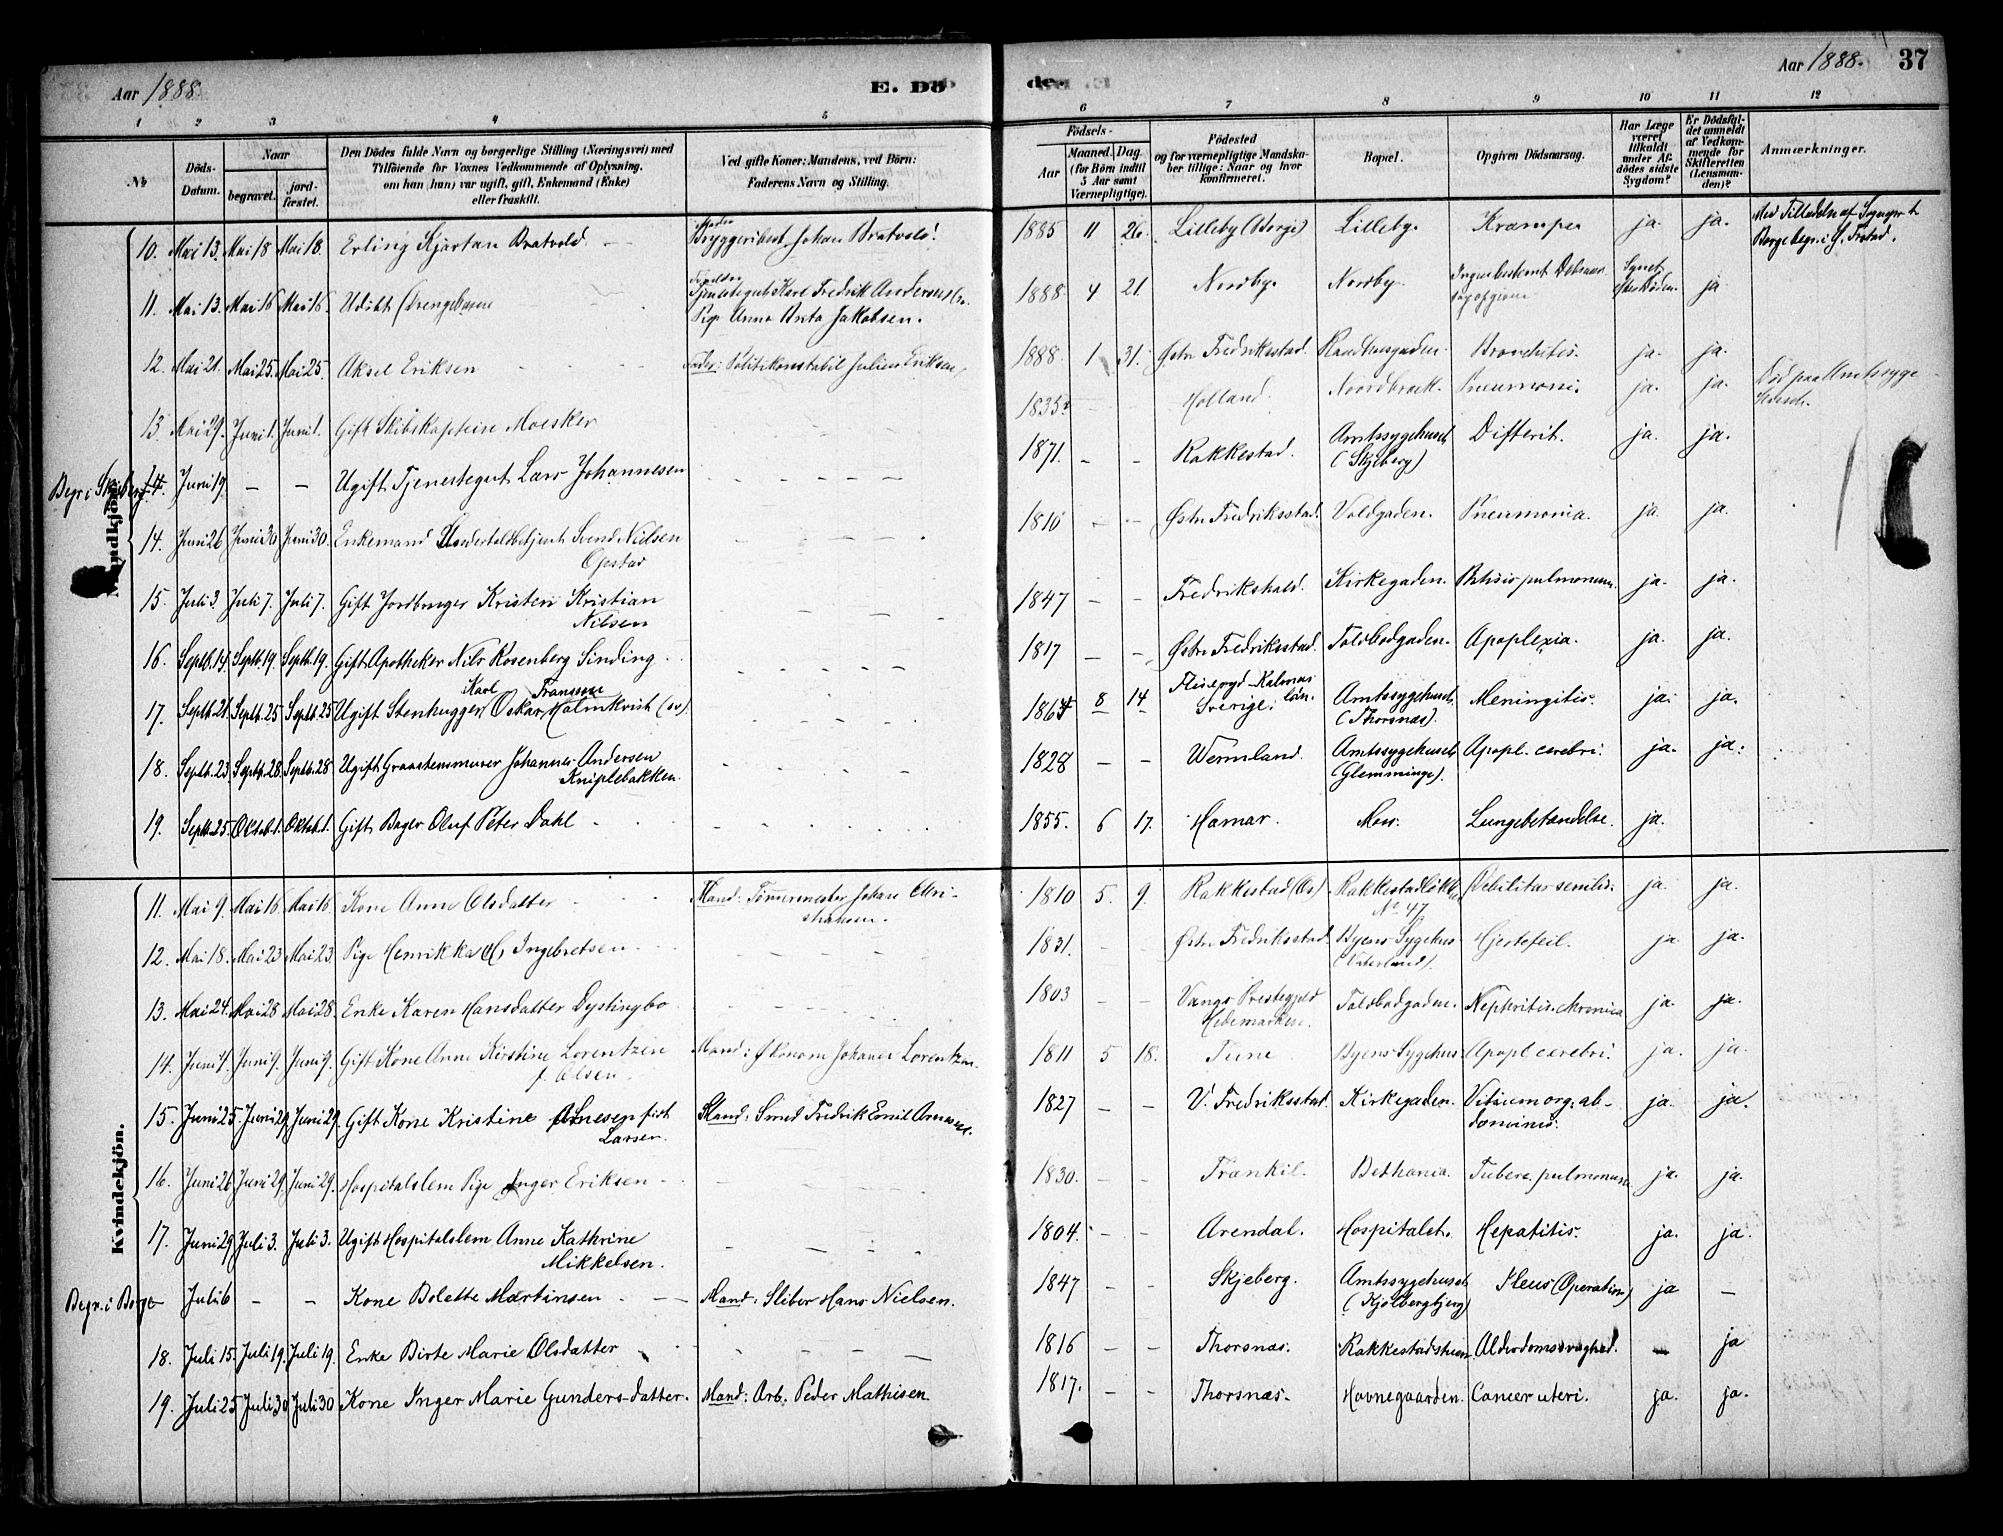 Aar 1888.
E. Dö
de.
Aar 1888.
37
1 2 3 4 5 6 7 8 9 10 11 12
No
Döds-
Datum.
Naar
begravet.
jord-
fæstet.
Den Dödes fulde Navn og borgerlige Stilling (Næringsvei) med
Tilföiende for Voxnes Vedkommende af Oplysning,
om han (hun) var ugift, gift, Enkemand (Enke)
eller fraskilt.
Ved gifte Koner: Mandens, ved Börn:
Faderens Navn og Stilling.
Födsels-
Aar
Maaned. Dag.
(for Börn indtil
5 Aar samt
Værnepligtige).
Födested
og for værnepligtige Mandska-
ber tillige: Naar og hvor
konfirmeret.
Bopæl.
Opgiven Dödsaarsag.
Har Læge
været
tilkaldt
under Af-
dödes sidste
Sygdom?
Er Dödsfal-
det anmeldt
af Vedkom-
mende for
Skifteretten
(Lensman-
den)?
Anmærkninger.
Mandkjön.
10. Mai 13. Mai 18 Mai 18. Erling Kjartan Bratvold Fader Bryggeribest. Johan Bratvold. 1885 11 26. Lilleby (Borge) Lilleby. Krampe ja. ja. Med Tilladelse af Sognepr. i
Borge begr. i G. Frstad.
11. Mai 13. Mai 16 Mai 16. Udöbt Drengebarn Forældre
Tjenestegut Karl Fredrik Anderson
Pige Anna Anta Jakobsen. 1888. 4 21. Nordby. Nordby. Ingen bestemt Dödsaar-
sag opgiven Synet
efter Döden. ja
12. Mai 21. Mai 25. Mai 25. Aksel Eriksen Fader: Politikonstabel Julius Eriksen. 1888. 1 31. Östre Fredriksstad. Raadhusgaden. Bronchitis. ja. ja.
13. Mai 29. Juni 1. Juni 1. Gift Skibskaptein Moesker 1835 – – Holland. Noordbroek. Pneumoni. ja. ja. Död paa Amtssyge
huset.
Begr. i Skjeberg 14. Juni 19 – – Ugift Tjenestegut Lars Johannesen 1871. – – Rakkestad. Amtssygehuset
(Skjeberg) Difterit. ja. ja.
14. Juni 26 Juni 30 Juni 30. Enkemand Undertoldbetjent Svend Nielsen
Opstad 1816 – – Östre Fredriksstad. Voldgaden. Pneumonia. ja. ja.
15. Juli 3. Juli 7. Juli 7. Gift Jordbruger Kristen Kristian
Nilsen 1847 – – Fredrikshald. Kirkegaden. Phtisis pulmonum. ja. ja.
16. Septb. 14. Septb. 19. Septb. 19. Gift Apotheker Nils Rosenberg Sinding 1817 – – Östre Fredriksstad. Toldbodgaden. Apoplexia. ja. ja.
17. Septb. 21. Septb. 25 Septb. 25 Ugift Stenhugger Karl Oskar Fransson Malmkvist (sv). 1864 8 14 Fliseryd Kalmar
län. Sverige. Amtssygehuset
(Thorsnæs). Meningitis. ja. ja.
18. Septb. 23 Septb. 28. Septb. 28 Ugift Graastensmurer Johannes Andersen
Kniplebakken. 1828 – – Wermland. Amtssygehuset
(Glemminge). Apopl. cerebri. ja. ja.
19. Septb. 25. Oktob. 1. Oktob. 1. Gift Bager Oluf Peter Dahl 1855. 6 17. Hamar. Moss. Lungebetændelse. ja.
Kvindekjön.
11. Mai 9. Mai 16. Mai 16. Kone Anne Olsdatter Mand: Tömmermester Johan Chri-
stiansen. 1810 5. 9. Rakkestad (Os) Rakkestadlökken
No 47 Debilitas senilis. ja. ja.
12. Mai 18. Mai 23 Mai 23. Pige Henrikka Ingebretsen 1831. – – Östre Fredriksstad. Byens Sygehus
(Vaterland). Hjertefeil. ja ja.
13. Mai 24. Mai 28 Mai 28. Enke Karen Hansdatter Dystingbo 1803 – – Vangs Prestegjeld
Hedemarken. Toldbodgaden. Nephritis chronica ja. ja.
14. Juni 4. Juni 9. Juni 9. Gift Kone Anne Kirstine Lorentzen
f. Olsen. Mand: Ökonom Johanes Lorentzen. 1811 5 18. Tune Byens Sygehus. Apopl. cerebri. ja. ja.
15. Juni 25. Juni 29. Juni 29. Gift Kone Kristine Arnesen födt
Larsen. Mand: Smed Fredrik Emil Arnesen. 1827 – – V. Fredriksstad. Kirkegaden. Vitium org. ab-
dominis. ja. ja.
16. Juni 26 Juni 29. Juni 29. Hospitalslem Pige Inger Eriksen 1830. – – Trankil. Bethania. Tuberc. pulmonum ja. ja.
17. Juni 29 Juli 3. Juli 3. Ugift Hospitalslem Anne Kathrine
Mikkelsen. 1804. – – Arendal. Hospitalet. Hepatitis. ja. ja.
Begr. i Borge Juli 6 – – Kone Bolette Martinsen Mand: Sliber Hans Nielsen. 1847 – – Skjeberg. Amtssygehuset
(Kjölbergbjerg) Ileus (Operation) ja –
18. Juli 15. Juli 19. Juli 19. Enke Birte Marie Olsdatter 1816 – – Thorsnæs. Rakkestadstuen Alderdomssvaghed. – ja
19. Juli 25 Juli 30 Juli 30 Kone Inger Marie Gunders-datter. Mand: Arb. Peder Mathisen 1817. – – Thorsnæs. Havnegaarden. Cancer uteri. ja. ja.